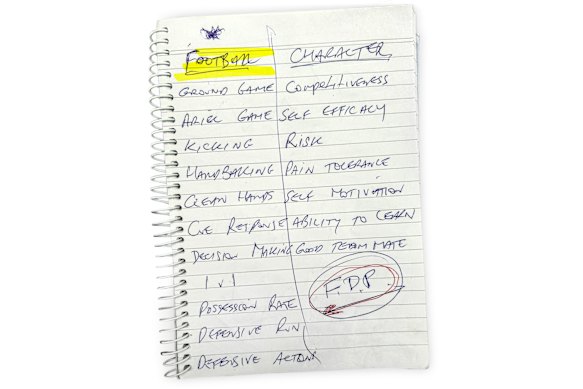 FOOTBALL
GROUND GAME
ARIEL GAME
KICKING
HANDBALLING
CLEAN HANDS
CUE RESPONSE
DECISION MAKING
1 v 1
POSSESSION RATE
DEFENSIVE RUN
DEFENSIVE ACTION
CHARACTER
COMPETITIVENESS
SELF EFFICACY
RISK
PAIN TOLERANCE
SELF MOTIVATION
ABILITY TO LEARN
GOOD TEAM MATE
F.D.P.